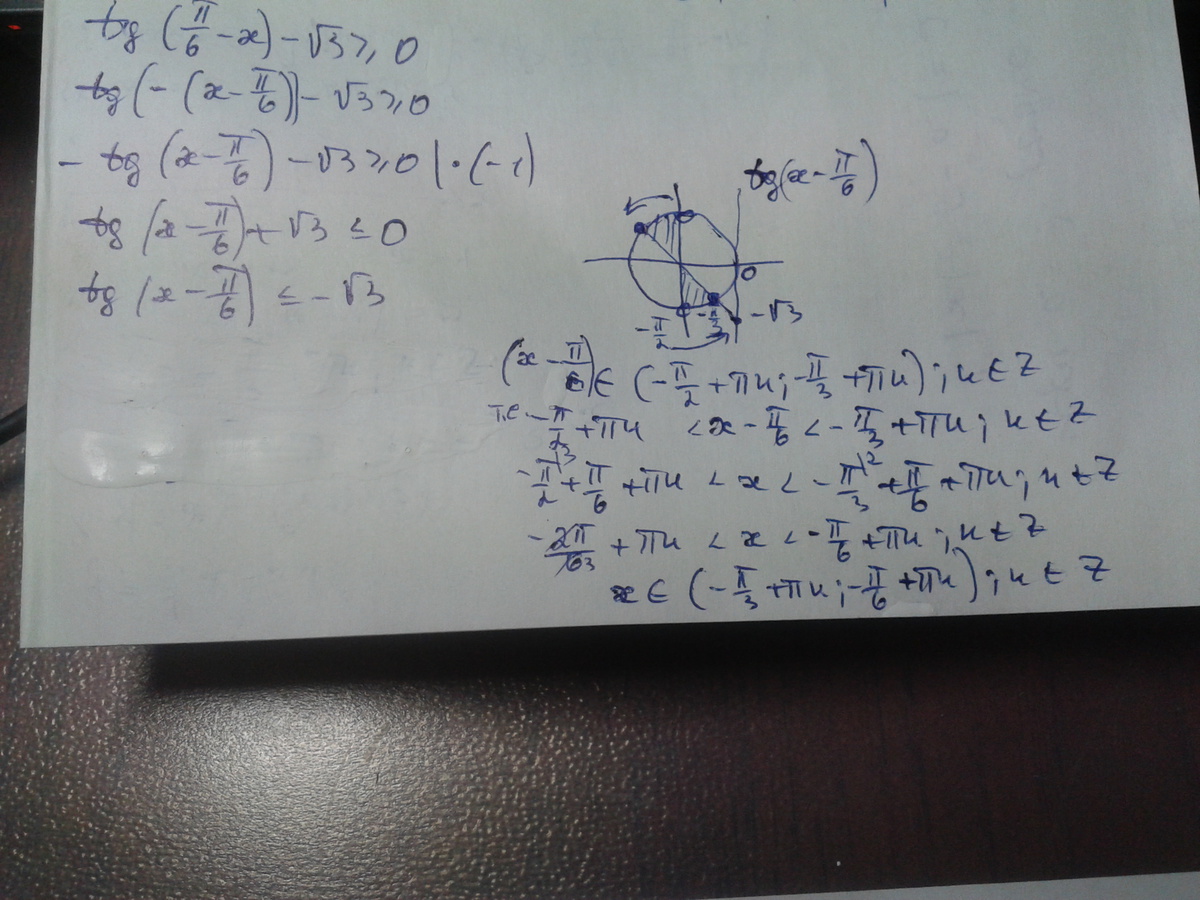 tg (π/6 - x) - √3 ≥ 0
tg (- (x - π/6)) - √3 ≥ 0
- tg (x - π/6) - √3 ≥ 0 | · (-1)
tg (x - π/6) + √3 ≤ 0
tg (x - π/6) ≤ - √3
tg(x - π/6)
0
- π/2 - π/3 - √3
(x - π/6) ∈ (- π/2 + πn ; - π/3 + πn) ; n ∈ Z
т.е - π/2 + πn < x - π/6 < - π/3 + πn ; n ∈ Z
- π/2 \3 + π/6 + πn < x < - π/3 \2 + π/6 + πn ; n ∈ Z
- 2π/6 3 + πn < x < - π/6 + πn ; n ∈ Z
x ∈ (- π/3 + πn ; - π/6 + πn) ; n ∈ Z